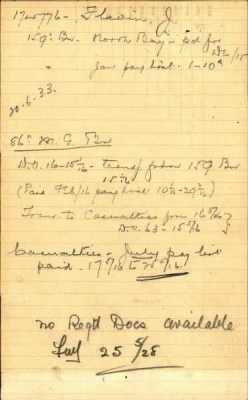 1724776 - Flavin, J
159th Bn. North Bay - pd for
Dec/15
" Jan pay list - 1-10th
20.6.33.
86th M. G. Bn
D.O. 16-15/2/16 - transf from 159 Bn
15/2/16
(Paid Feb/16 pay list 10/2-29/2/16)
Trans. to Casualties from 16/5/16
D.O. 63 - 15/5/16
Casualties - July pay list
paid. 17/5/16 to 25/5/16
no Regt'l Docs available
25 5/28